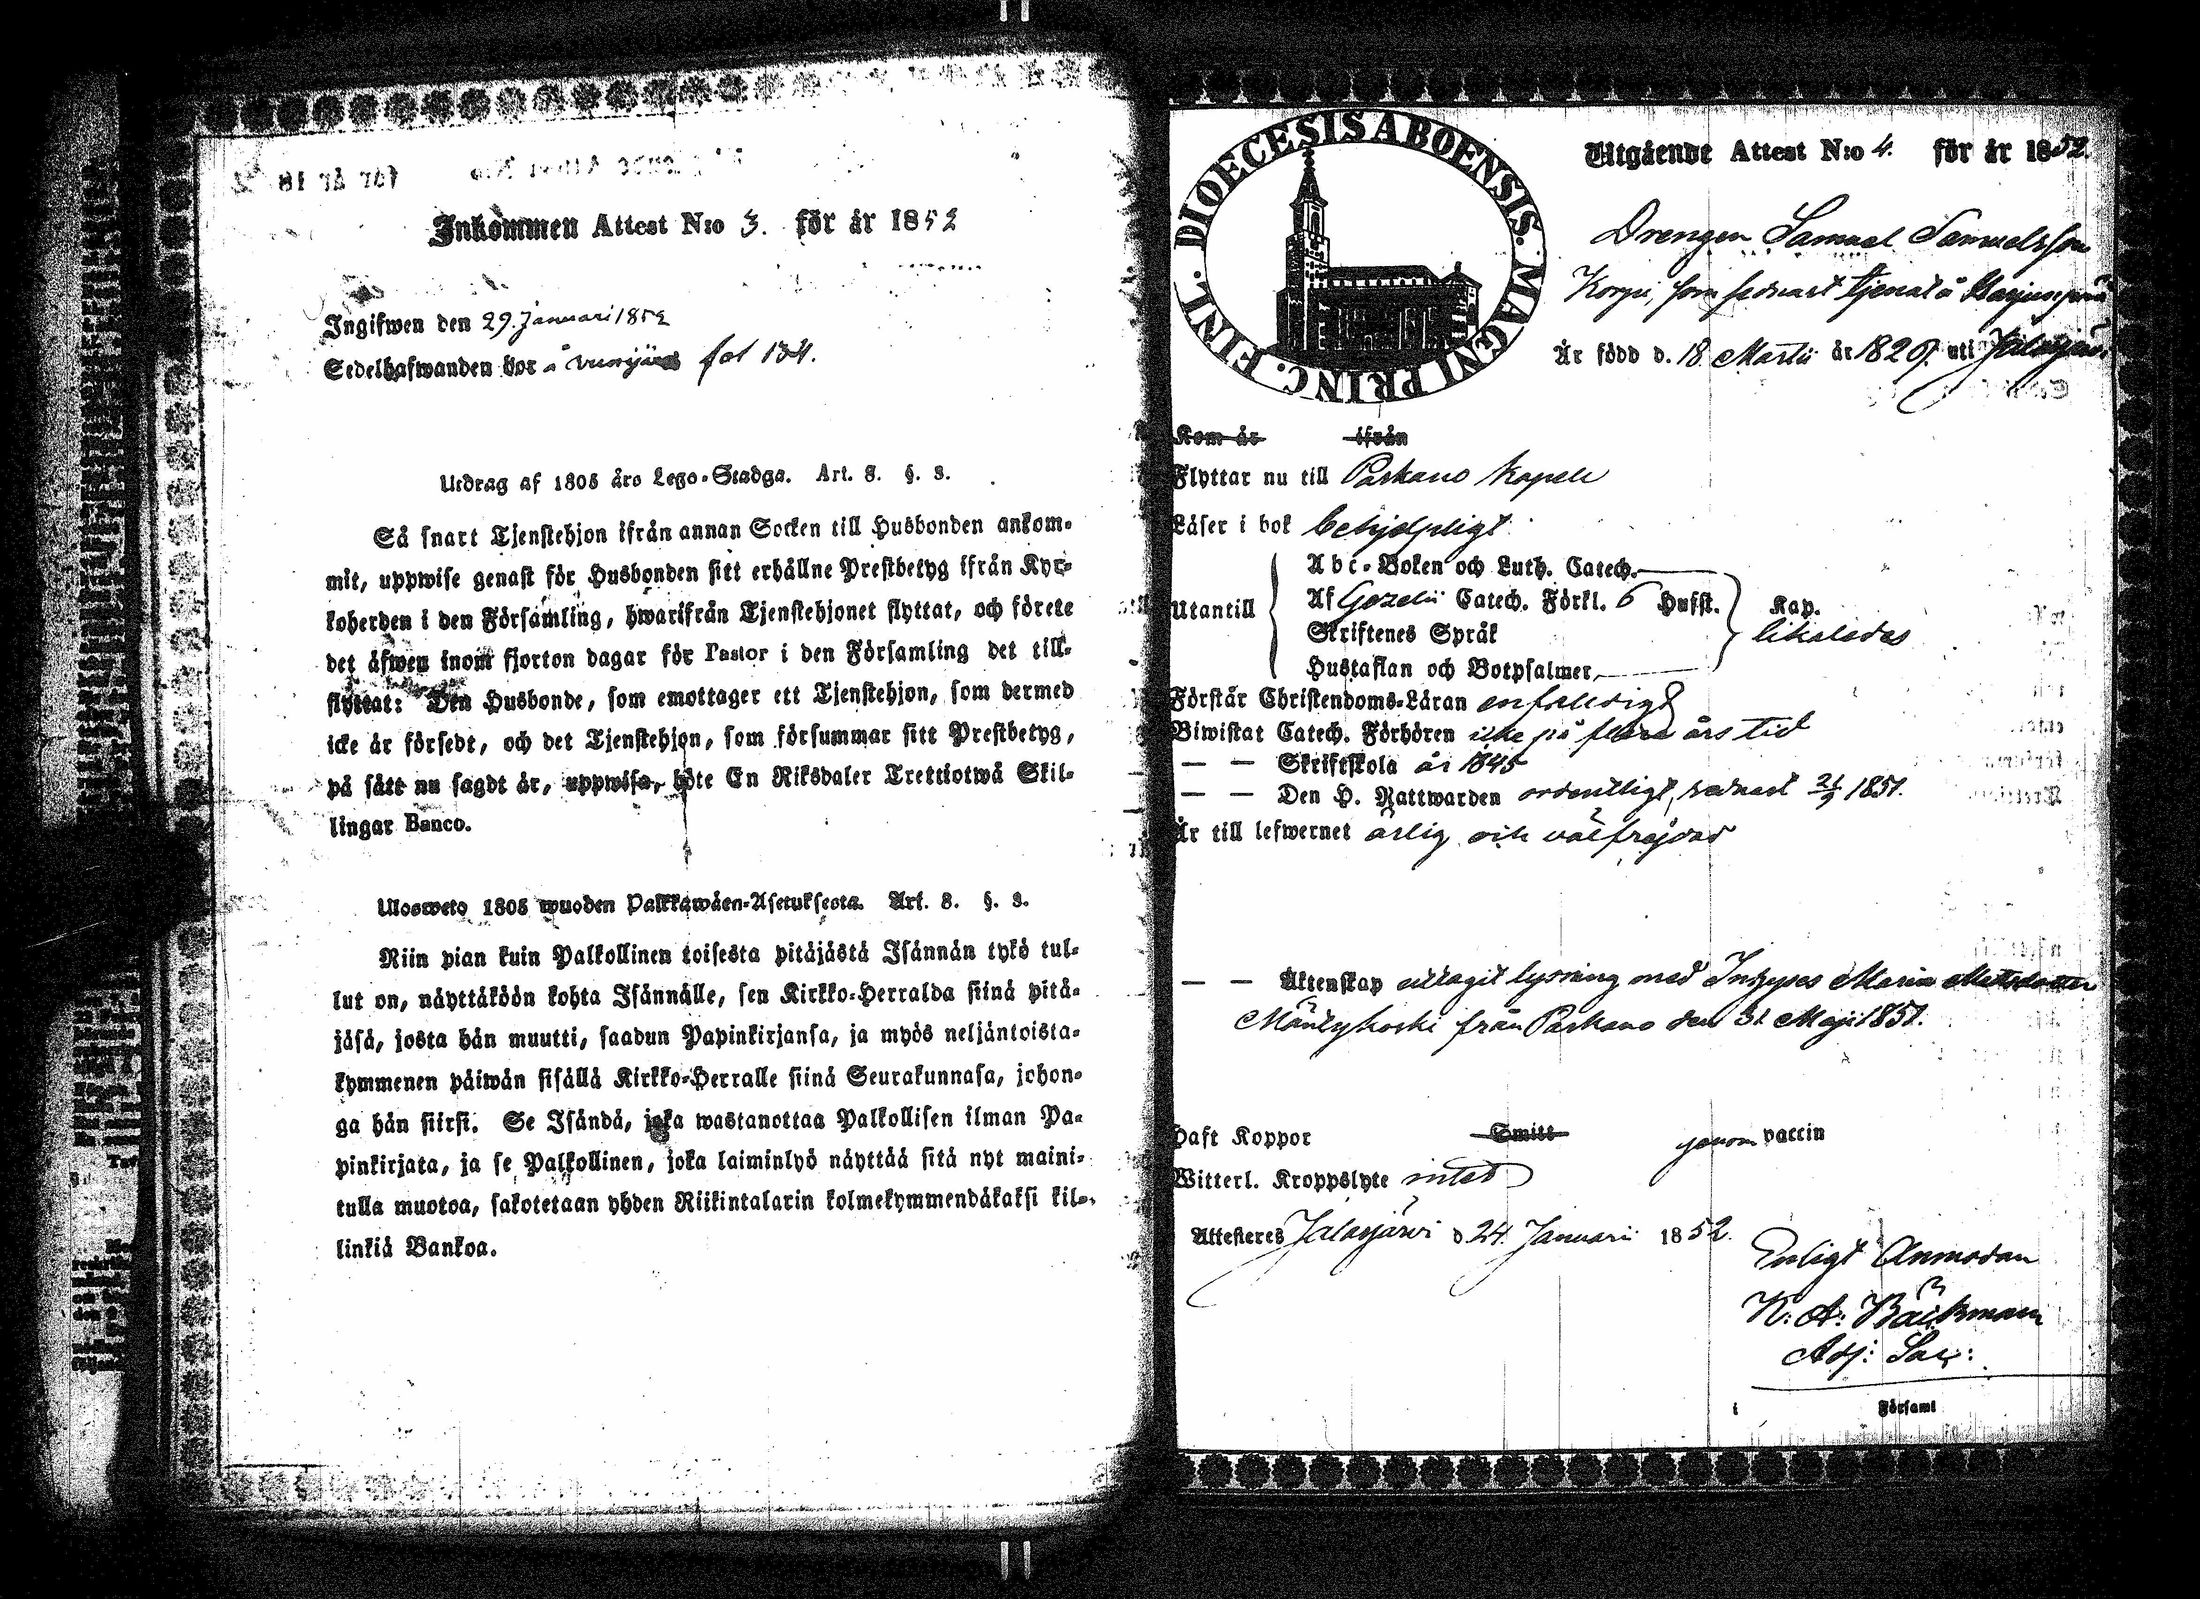 Inkommen Attest N:o 3. för år 1852
Ingifwen den 29. Januari 1852
Sedelhafwanden bor å vuorijärvi fol 134.
Utdrag af 1805 års Lego-Stadga. Art. 8. §. 3.
Så snart Tjenstehjon ifrån annan Socken till Husbonden ankom-
mit, uppwise genast för Husbonden sitt erhållne Prestbetyg ifrån Kyr-
koherden i den Församling, hwarifrån Tjenstehjonet flyttat, och förete
det äfwen inom fjorton dagar för Pastor i den Församling det till-
flyttat: Den Husbonde, som emottager ett Tjenstehjon, som dermed
icke är försedt, och det Tjenstehjon, som försummar sitt Prestbetyg,
på sätt nu sagdt är, uppwisa, böte En Riksdaler Trettiotwå Skil-
lingar Banco.
Ulosweto 1805 wuoden Palkkawäen-Asetuksesta. Art. 8. §. 3.
Niin pian kuin Palkollinen toisesta pitäjästä Isännän tykö tul-
lut on, näyttäköön kohta Isännälle, sen Kirkko-Herralda siinä pitä-
jäsä, josta hän muutti, saadun Papinkirjansa, ja myös neljäntoista-
kymmenen päiwän sisällä Kirkko-Herralle siinä Seurakunnasa, johon-
ga hän siirsi. Se Isändä, joka wastanottaa Palkollisen ilman Pa-
pinkirjata, ja se Palkollinen, joka laiminlyö näyttää sitä nyt maini-
tulla muotoa, sakotetaan yhden Riikintalarin kolmekymmendäkaksi kil-
linkiä Bankoa.
DIOECESIS ABOENSIS. MAGNI PRINC. FINL.
Utgående Attest N:o 4. för år 1852.
Drengen Samuel Samuelsson
Korpi, som sednast tjenat å Harjunpää
Är född d. 18 Martii år 1829. uti Jalasjärvi
Kom år ifrån
Flyttar nu till Parkano Kapell
Läser i bok behjelpligt
Abc-Boken och Luth. Catech.
Utantill Af Gezelii Catech. Förkl. 6 Hufst. Kap.
Skriftenes Språk likaledes
Hustaflan och Botpsalmer,
Förstår Christendoms-Läran enfaldigt
Biwistat Catech. Förhören icke på flera års tid
— — Skriftskola år 1845
— — Den H. Nattwarden ordentligt, sednast 21/9 1851.
Är till lefwernet ärlig och välfrejdad
— — Äktenskap uttagit lysning med Inhyses Maria Mattsdotter
Mäntykoski från Parkano den 31 Maji 1851.
Haft Koppor Smitt genom vaccin
Witterl. Kroppslyte intet
Attesteres Jalasjärvi d 24 Januarii 1852.
Enligt Anmodan
K: A: Bäckman
Adj: Sac:
i Församl